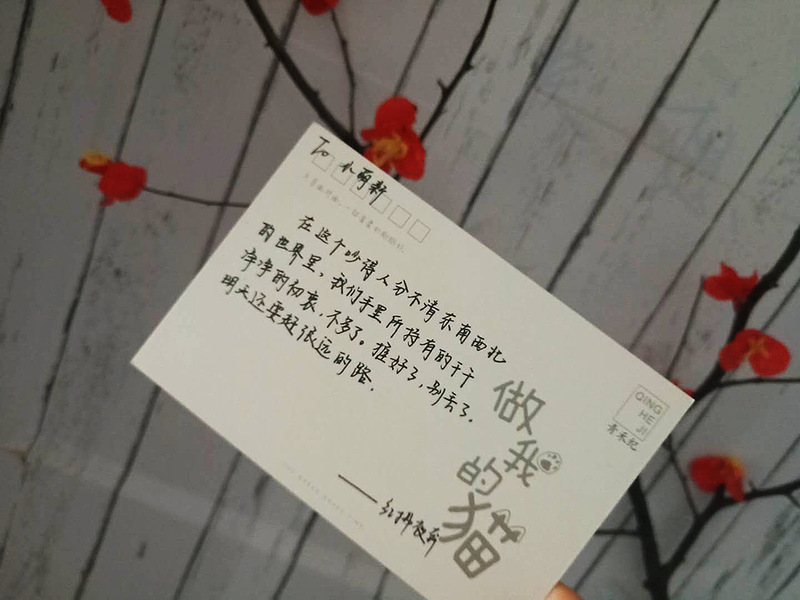 To 小萌新
在这个吵得人分不清东南西北
的世界里，我们手里所持有的干干
净净的初衷，不多了。揣好了，别丢了。
明天还要赶很远的路。
——红拂夜奔
做我的猫
QING
HE
JI
青禾纪